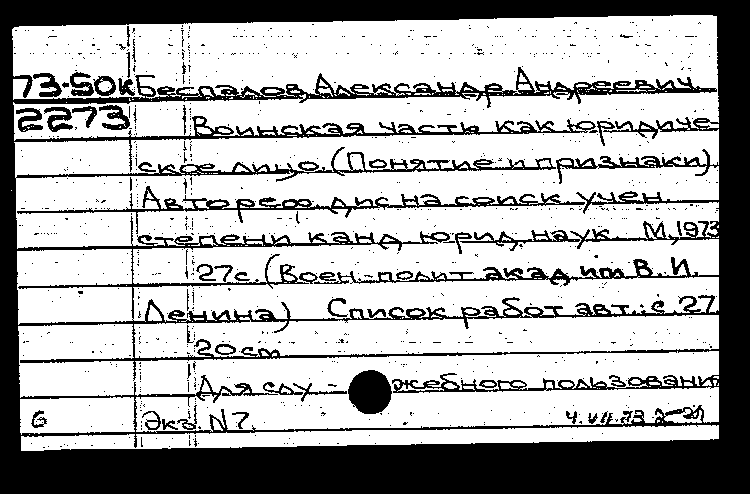 73-50к Беспалов, Александр Андреевич.
2273 Воинская часть как юридиче-
ское лицо. (Понятие и признаки).
Автореф. дис на соиск учен.
степени канд. юрид. наук. М., 1973
27с. (Воен.-полит акад им В. И.
Ленина) Список работ авт.: с. 27.
20 см
Для слу - жебного пользования
6 Экз. N 7. 4.VII.73